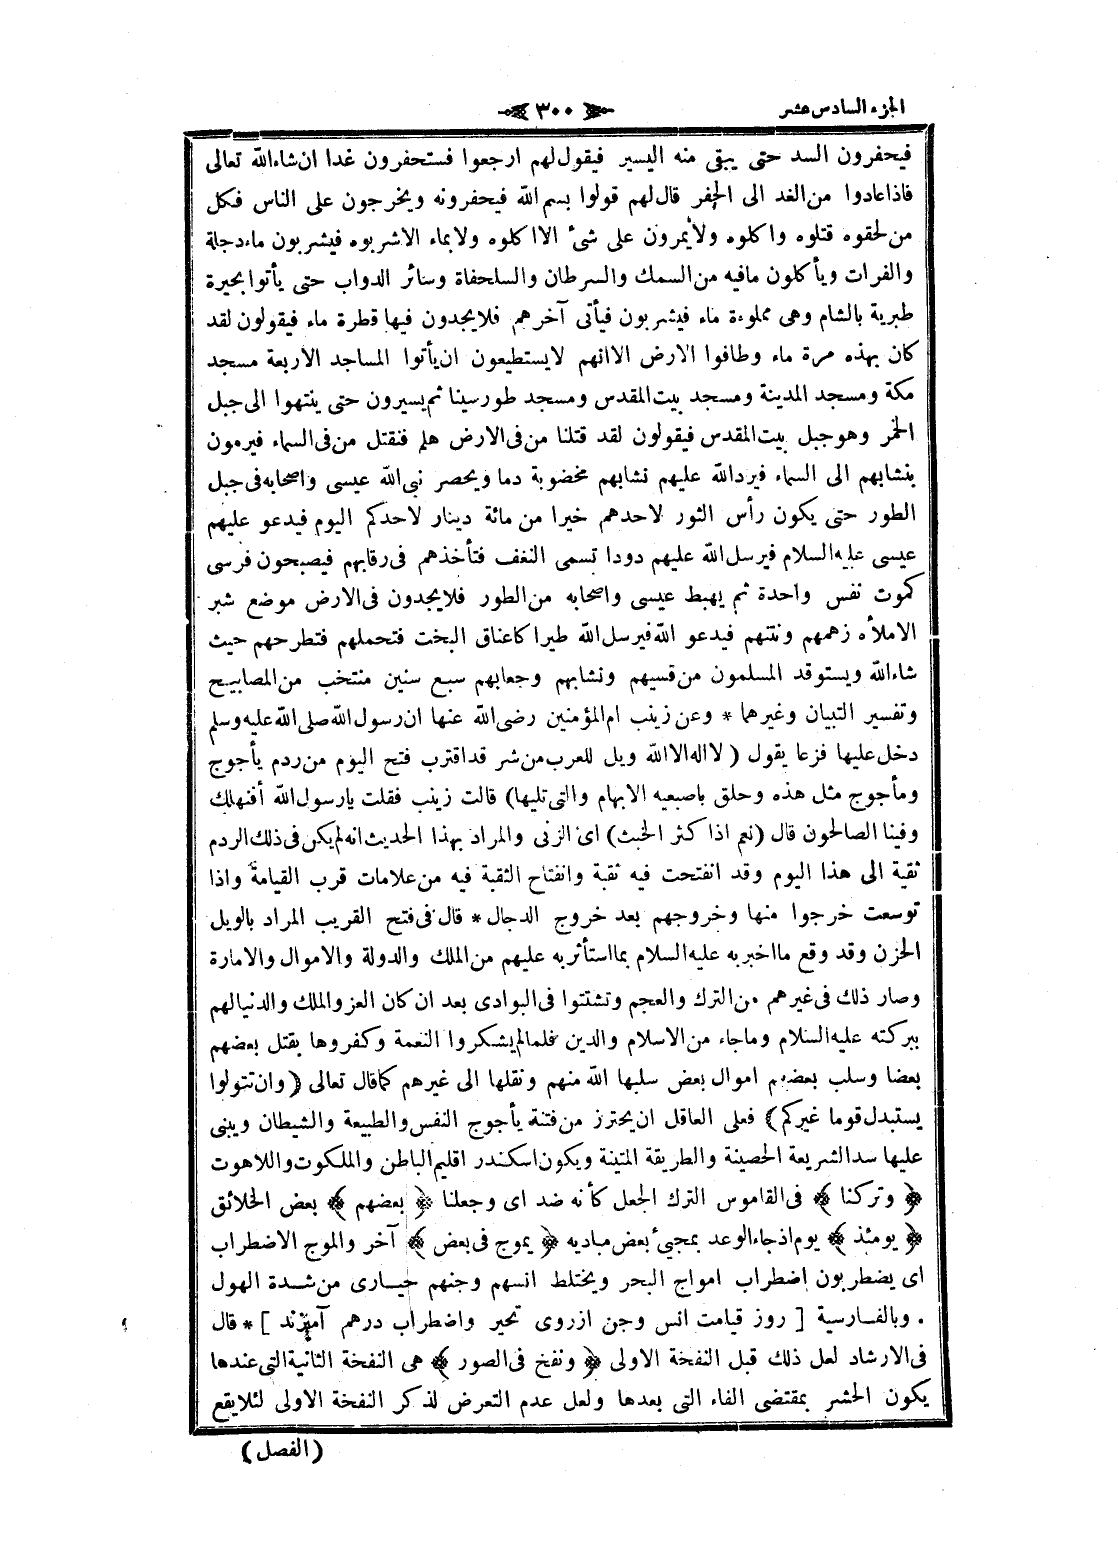 الجزء السادس عشر
٣٠٠
فيحفرون السد حتى يبقى منه اليسير فيقول لهم ارجعوا فستحفرون غدا ان شاءالله تعالى
فاذا عادوا من الغد الى الحفر قال لهم قولوا بسم الله فيحفرونه ويخرجون على الناس فكل
من لحقوه قتلوه واكلوه ولا يمرون على شئ الا اكلوه ولا بماء الا شربوه فيشربون ماء دجلة
والفرات ويأكلون مافيه من السمك والسرطان والسلحفاة وسائر الدواب حتى يأتوا بحيرة
طبرية بالشام وهى مملوءة ماء فيشربون فيأتى آخرهم فلا يجدون فيها قطرة ماء فيقولون لقد
كان بهذه مرة ماء وطافوا الارض الا انهم لايستطيعون ان يأتوا المساجد الاربعة مسجد
مكة ومسجد المدينة ومسجد بيت المقدس ومسجد طورسينا ثم يسيرون حتى ينتهوا الى جبل
الخمر وهو جبل بيت المقدس فيقولون لقد قتلنا من فى الارض هلم فنقتل من فى السماء فيرمون
بنشابهم الى السماء فيرد الله عليهم نشابهم مخضوبة دما ويحصر نبى الله عيسى واصحابه فى جبل
الطور حتى يكون رأس الثور لاحدهم خيرا من مائة دينار لاحدكم اليوم فيدعو عليهم
عيسى عليه السلام فيرسل الله عليهم دودا تسمى النغف فتأخذهم فى رقابهم فيصبحون فرسى
كموت نفس واحدة ثم يهبط عيسى واصحابه من الطور فلا يجدون فى الارض موضع شبر
الا ملأه زهمهم ونتنهم فيدعو الله فيرسل الله طيرا كاعناق البخت فتحملهم فتطرحهم حيث
شاءالله ويستوقد المسلمون من قسيهم ونشابهم وجعابهم سبع سنين منتخب من المصابيح
وتفسير التبيان وغيرهما * وعن زينب ام المؤمنين رضى الله عنها ان رسول الله صلى الله عليه وسلم
دخل عليها فزعا يقول ( لا اله الا الله ويل للعرب من شر قد اقترب فتح اليوم من ردم يأجوج
ومأجوج مثل هذه وحلق باصبعيه الابهام والتى تليها) قالت زينب فقلت يارسول الله أفنهلك
وفينا الصالحون قال (نعم اذا كثر الخبث) اى الزنى والمراد بهذا الحديث انه لم يكن فى ذلك الردم
ثقبة الى هذا اليوم وقد انفتحت فيه ثقبة وانفتاح الثقبة فيه من علامات قرب القيامة واذا
توسعت خرجوا منها وخروجهم بعد خروج الدجال * قال فى فتح القريب المراد بالويل
الحزن وقد وقع ما اخبر به عليه السلام بما استأثر به عليهم من الملك والدولة والاموال والامارة
وصار ذلك فى غيرهم من الترك والعجم وتشتتوا فى البوادى بعد ان كان العز والملك والدنيا لهم
ببركته عليه السلام وماجاء من الاسلام والدين فلما لم يشكروا النعمة وكفروها بقتل بعضهم
بعضا وسلب بعضهم اموال بعض سلبها الله منهم ونقلها الى غيرهم كما قال تعالى ( وان تتولوا
يستبدل قوما غيركم) فعلى العاقل ان يحترز من فتنة يأجوج النفس والطبيعة والشيطان ويبنى
عليها سد الشريعة الحصينة والطريقة المتينة ويكون اسكندر اقليم الباطن والملكوت واللاهوت
﴿ وتركنا ﴾ فى القاموس الترك الجعل كأنه ضد اى وجعلنا ﴿ بعضهم ﴾ بعض الخلائق
﴿ يومئذ ﴾ يوم اذ جاء الوعد بمجيئ بعض مباديه ﴿ يموج فى بعض ﴾ آخر والموج الاضطراب
اى يضطربون اضطراب امواج البحر ويختلط انسهم وجنهم حيارى من شدة الهول
. وبالفارسية [ روز قيامت انس وجن ازروى تحير واضطراب درهم آميزند ] * قال
فى الارشاد لعل ذلك قبل النفخة الاولى ﴿ ونفخ فى الصور ﴾ هى النفخة الثانية التى عندها
يكون الحشر بمقتضى الفاء التى بعدها ولعل عدم التعرض لذكر النفخة الاولى لئلا يقع
(الفصل)